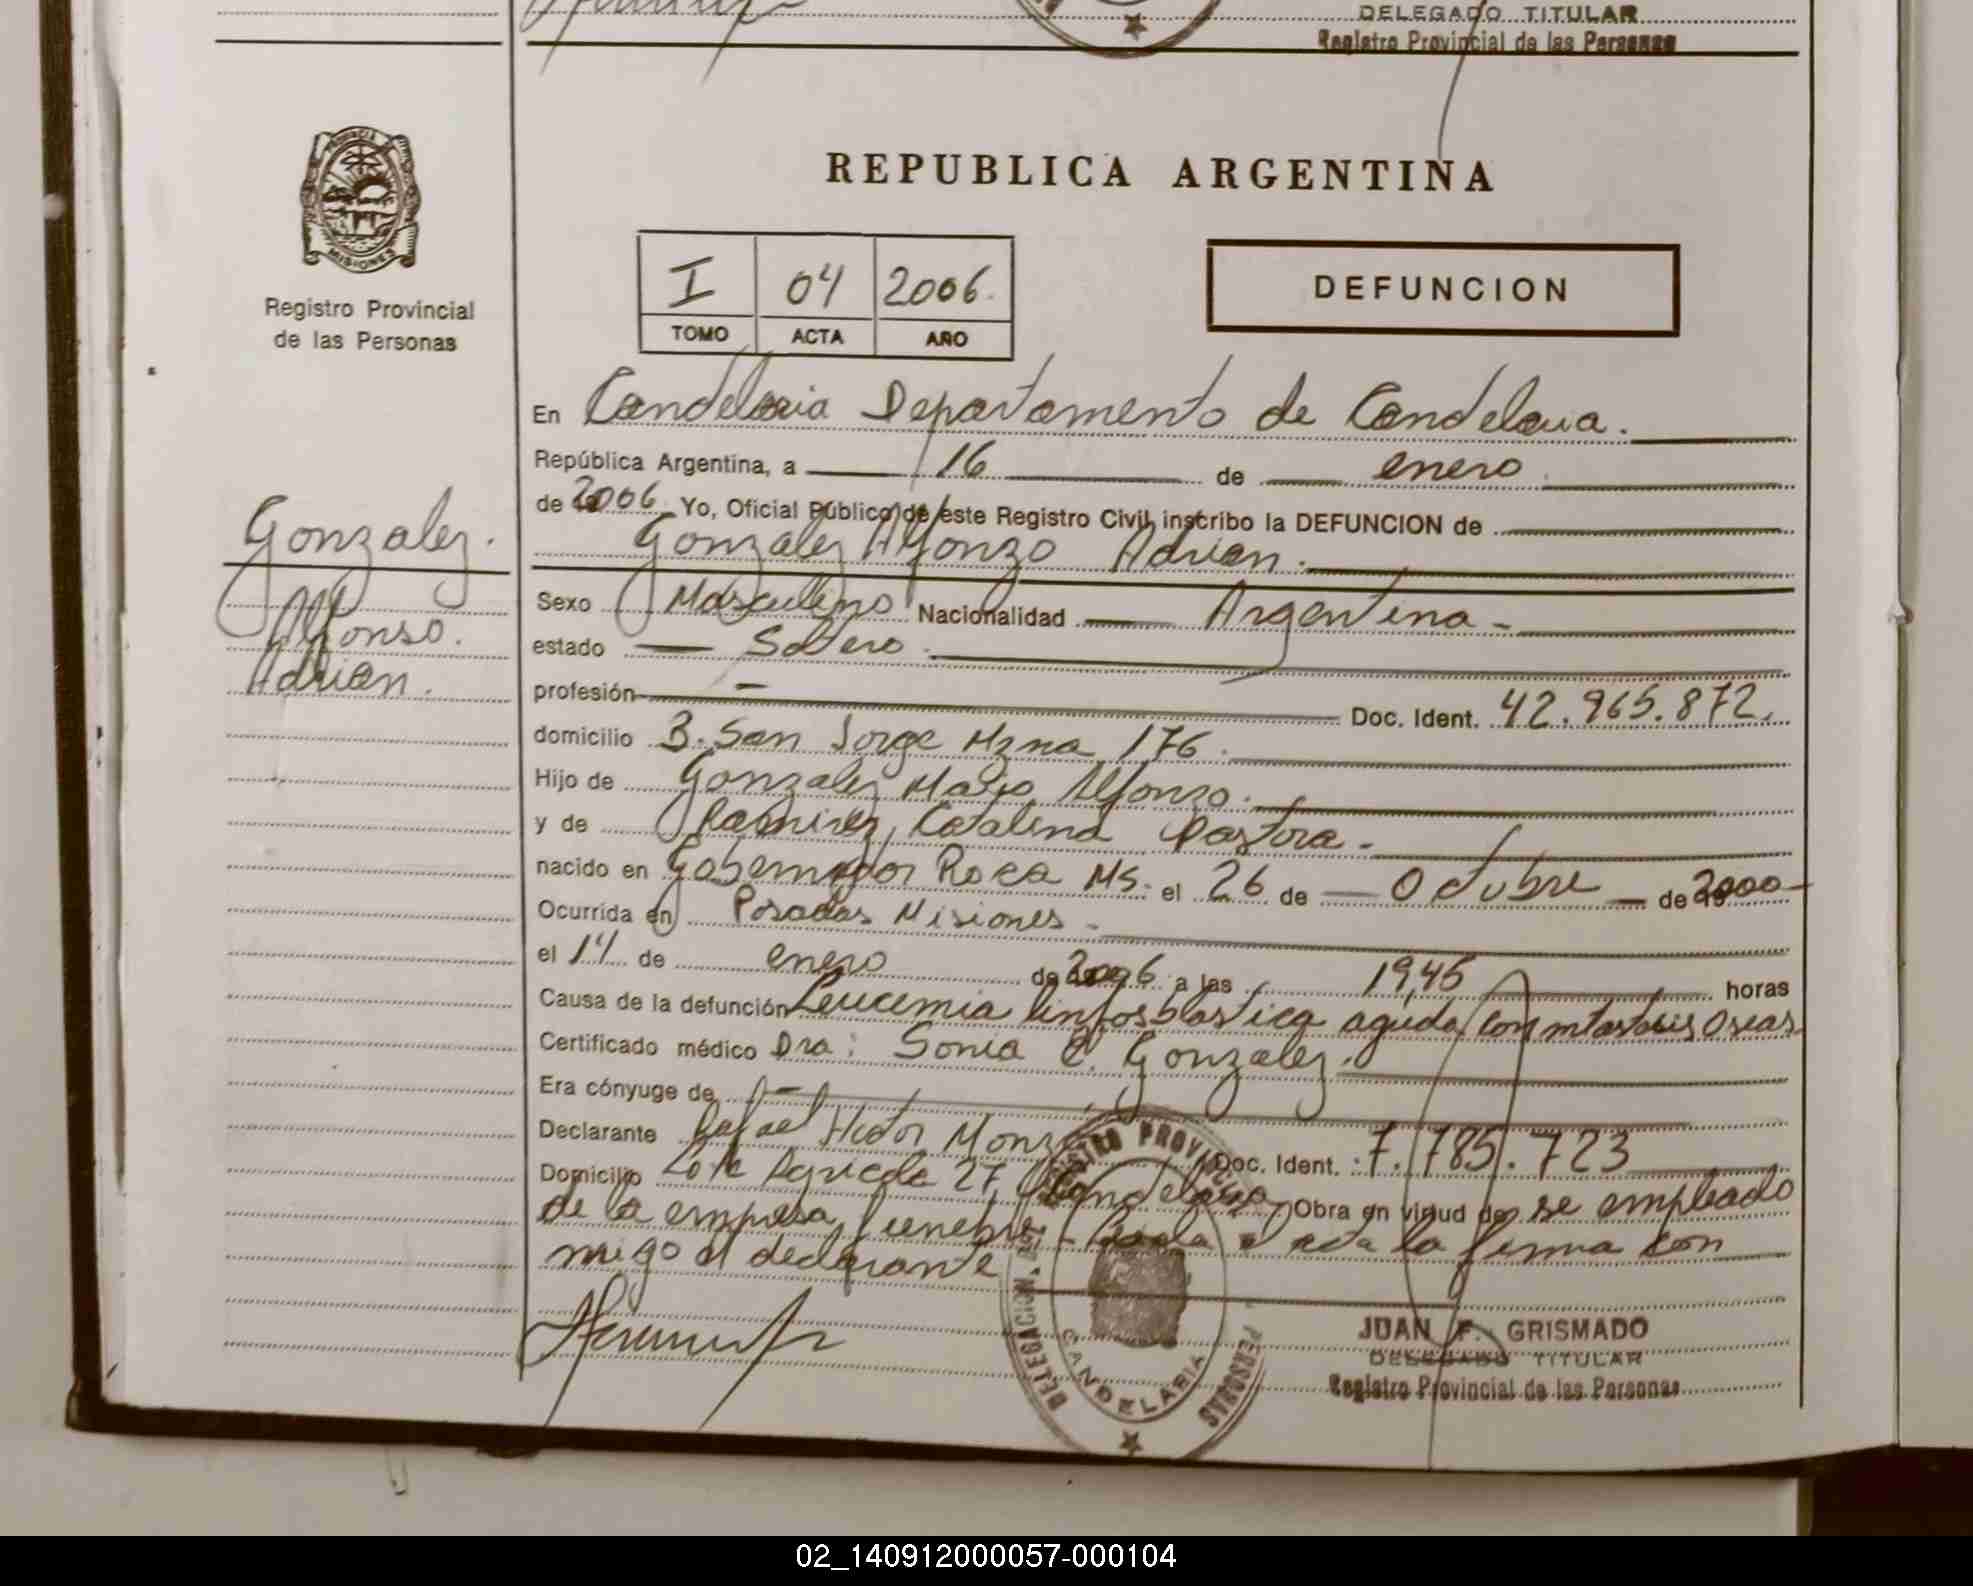 DELEGADO TITULAR
Registro Provincial de las Personas
PROVINCIA
MISIONES
Registro Provincial
de las Personas
REPUBLICA ARGENTINA
I 04 2006
TOMO ACTA AÑO
DEFUNCION
En Candelaria Departamento de Candelaria.
República Argentina, a 16 de enero
de 2006 Yo, Oficial Público de este Registro Civil, inscribo la DEFUNCION de
Gonzalez Alfonzo Adrian.
Gonzalez.
Alfonso.
Adrian.
Sexo Masculino Nacionalidad Argentina -
estado Soltero
profesión - Doc. Ident. 42.965.872.
domicilio B. San Jorge Mzna 176.
Hijo de Gonzalez Mario Alfonso.
y de Ramirez, Catalina Pastora.
nacido en Gobernador Roca Ms. el 26 de Octubre de 2000
Ocurrida en Posadas Misiones
el 14 de enero de 2006 a las 19,45 horas
Causa de la defunción Leucemia linfosblastica aguda con mtastasis Oseas
Certificado médico Dra: Sonia E. Gonzalez.
Era cónyuge de -
Declarante Rafael Hector Doc. Ident. 7.785.723
Domicilio Lote Agricola 27, Candelaria Obra en virtud de se empleado
de la empresa funebre - Leida el acta la firma con
migo el declarante
REGISTRO PROVINCIAL
PERSONAS
DELEGACION
CANDELARIA
JUAN F. GRISMADO
DELEGADO TITULAR
Registro Provincial de las Personas
02_140912000057-000104